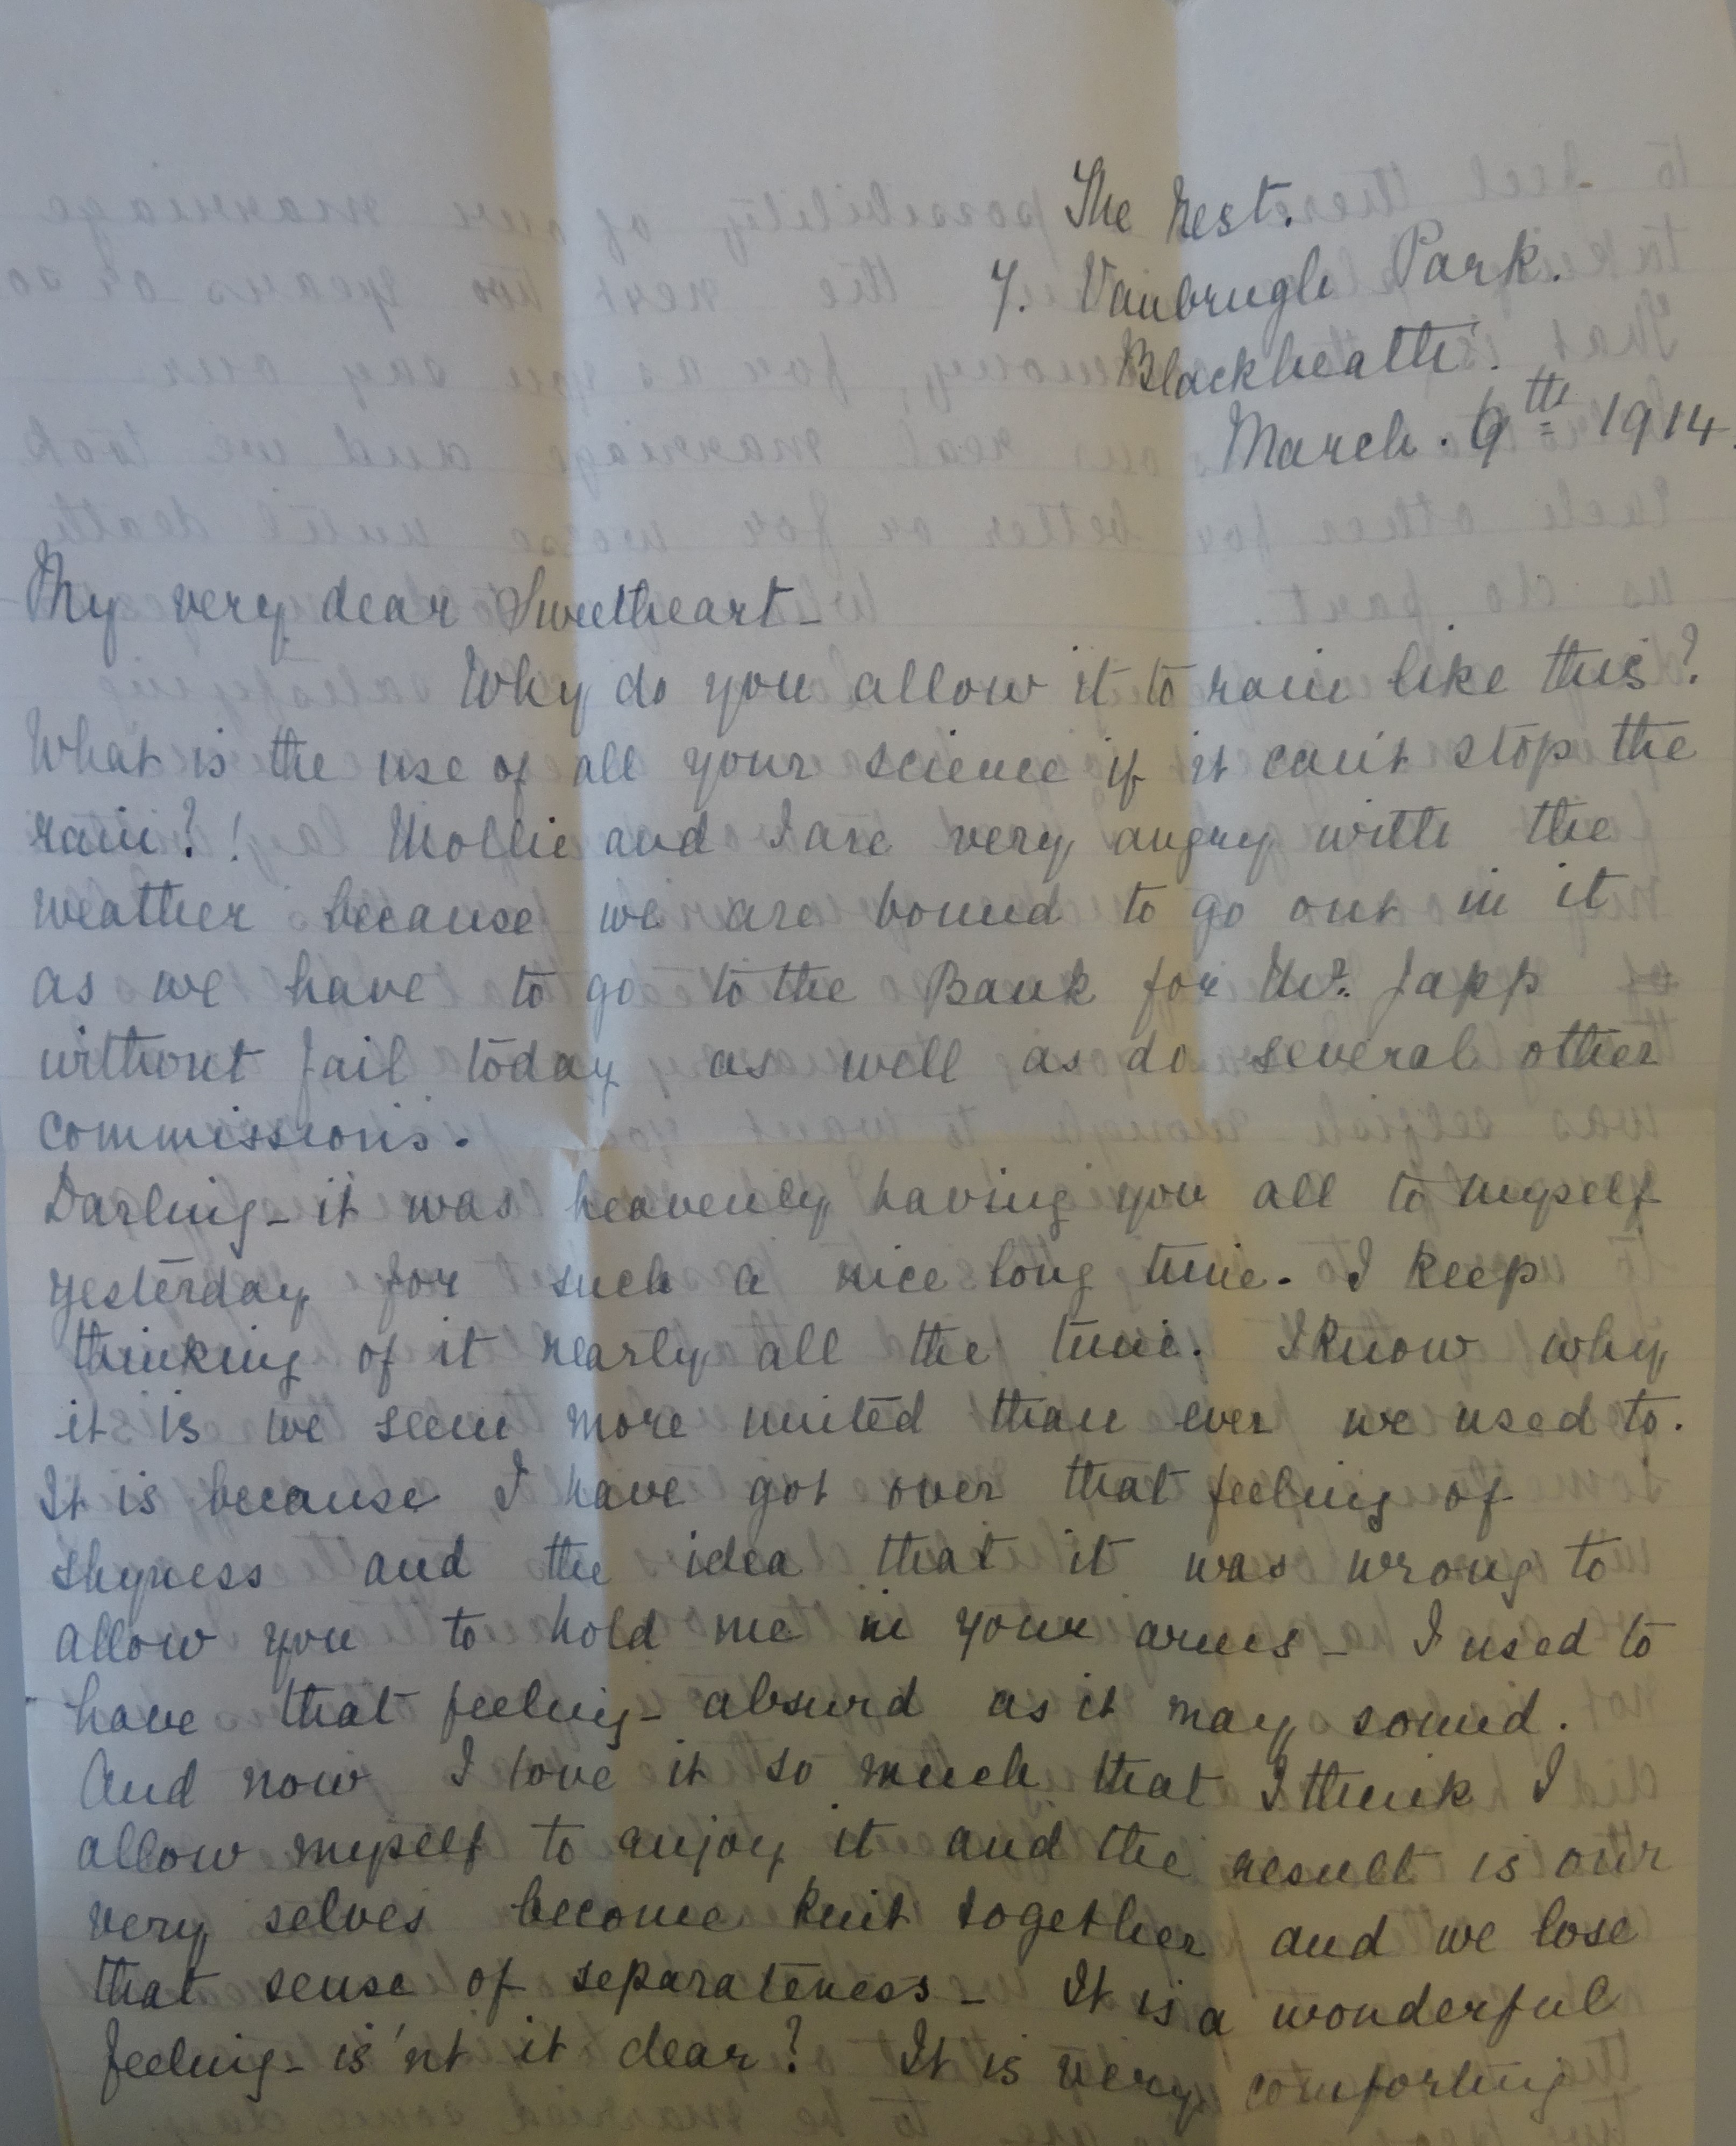 The Nest.
7. Vanbrugh Park.
Blackheath.
March. 9th 1914.
My very dear Sweetheart_
Why do you allow it to rain like this?
What is the use of all your science if it can't stop the
rain?! Mollie and I are very angry with the
weather because we are bound to go out in it
as we have to go to the Bank for Mr. Japp
without fail today as well as do several other
commissions.
Darling_ it was heavenly having you all to myself
yesterday for such a nice long time. I keep
thinking of it nearly all the time. I know why
it is we seem more united than ever we used to.
It is because I have got over that feeling of
shyness and the idea that it was wrong to
allow you to hold me in your arms _ I used to
have that feeling_ absurd as it may sound.
And now I love it so much that I think I
allow myself to enjoy it and the result is our
very selves become knit together and we lose
that sense of separateness _ It is a wonderful
feeling_ is'nt it dear? It is very comforting